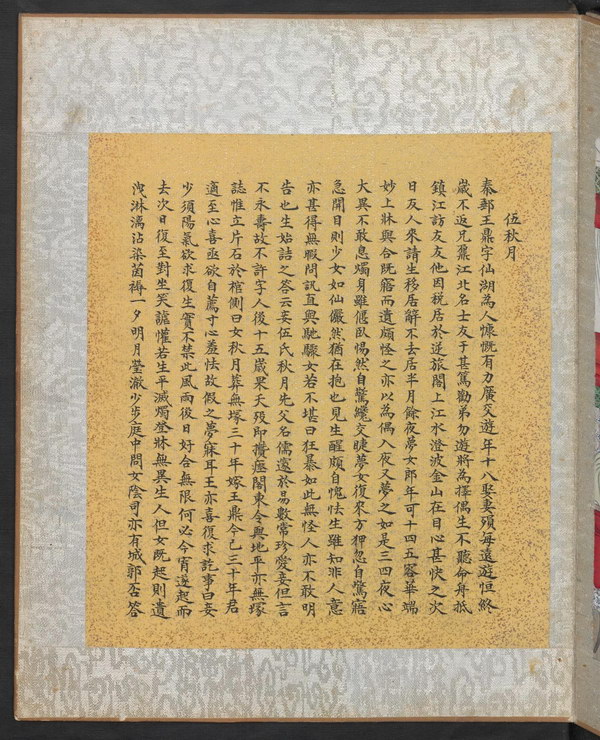 伍秋月
秦郵王鼎字仙湖為人慷慨有力廣交遊年十八娶妻殞每遠遊恒終
歲不返兄鼐江北名士友于甚篤勸弟勿遊將為擇偶生不聽命舟抵
鎮江訪友友他因稅居於逆旅閣上江水澄波金山在目心甚快之次
日友人來請生移居辭不去居半月餘夜夢女郎年可十四五容華端
妙上牀與合既寤而遺頗怪之亦以為偶入夜又夢之如是三四夜心
大異不敢息燭身雖偃臥惕然自驚纔交睫夢女復來方狎忽自驚寤
急開目則少女如仙儼然猶在抱也見生醒頗自愧怯生雖知非人意
亦甚得無暇問訊直與馳驟女若不堪曰狂暴如此無怪人亦不敢明
告也生始詰之答云妾伍氏秋月先父名儒邃於易數常珍愛妾但言
不永壽故不許字人後十五歲果夭歿即攢瘞閣東令與地平亦無塚
誌惟立片石於棺側曰女秋月葬無塚三十年嫁王鼎今已三十年君
適至心喜亟欲自薦寸心羞怯故假之夢寐耳王亦喜復求訖事曰妾
少須陽氣欲求復生實不禁此風雨後日好合無限何必今宵遂起而
去次日復至對坐笑謔懽若生平滅燭登牀無異生人但女既起則遺
洩淋漓沾染茵褥一夕明月瑩澈少步庭中問女陰司亦有城郭否答